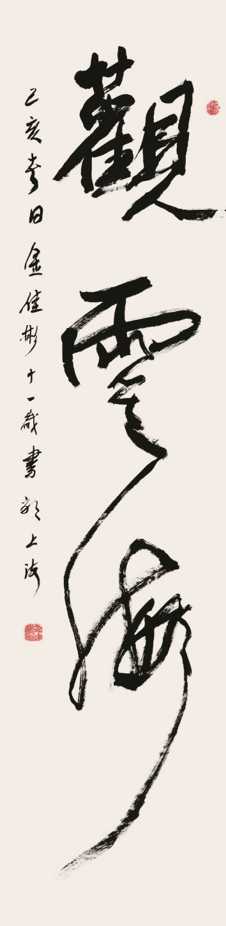 觀雲海
己亥春日金佳彬十一歲書於上海